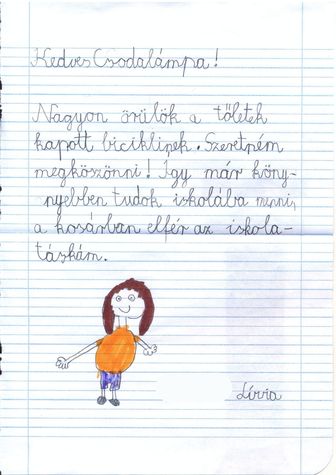 Kedves Csodalámpa!
Nagyon örülök a tőletek
kapott biciklinek. Szeretném
megköszönni! Így már köny-
nyebben tudok iskolába menni,
a kosárban elfér az iskola-
táskám.
Lívia